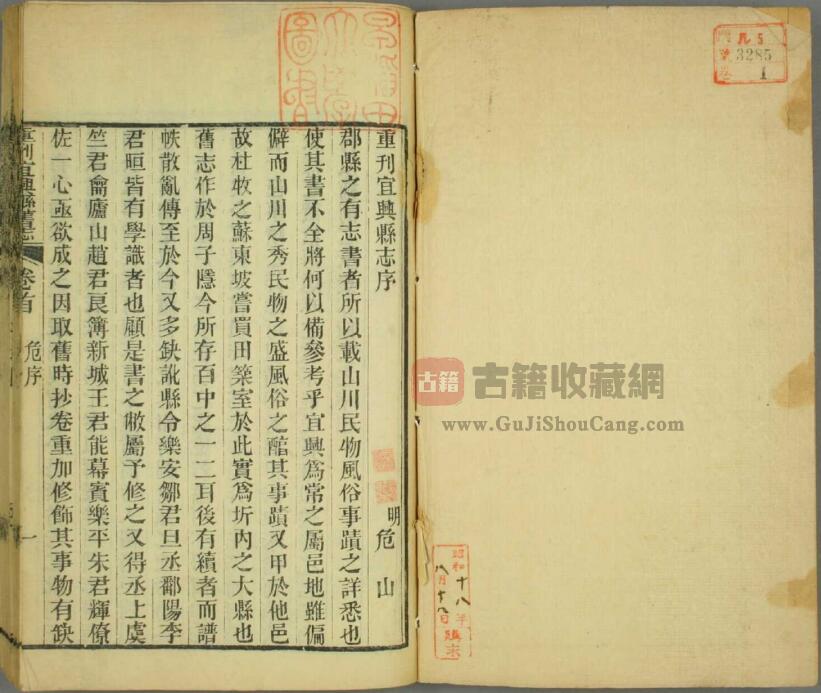 重刊宜興縣志序
明 危 山
郡縣之有志書者所以載山川民物風俗事蹟之詳悉也
使其書不全將何以備參考乎宜興爲常之屬邑地雖偏
僻而山川之秀民物之盛風俗之醇其事蹟又甲於他邑
故杜牧之蘇東坡嘗買田築室於此實爲圻內之大縣也
舊志作於周子隱今所存百中之一二耳後有續者而譜
帙散亂傳至於今又多缺訛縣令樂安鄒君旦丞鄱陽李
君晅皆有學識者也顧是書之敝屬予修之又得丞上虞
竺君龠廬山趙君良簿新城王君能幕賓樂平朱君輝僚
佐一心亟欲成之因取舊時抄卷重加修飾其事物有缺
重刊宜興縣舊志 卷首 危序 一
早稻田大學圖書
5
3285
1
昭和十八年
八月十八日購求
古籍 古籍收藏網
www.GuJiShouCang.com